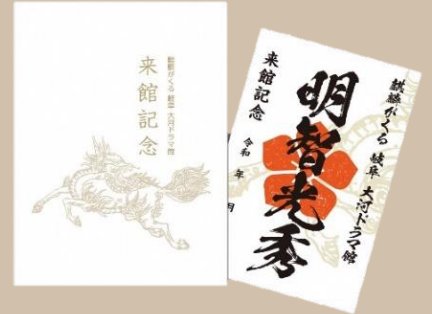 麒麟がくる 岐阜 大河ドラマ館
来館記念
麒麟がくる 岐阜 大河ドラマ館
明智光秀
来館記念
令和 年 月